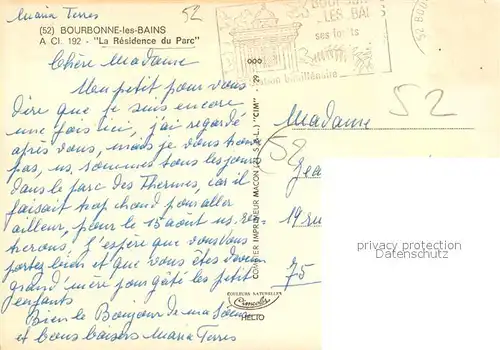 Maria Terres
52
(52) BOURBONNE-les-BAINS
A CI. 192 - "La Résidence du Parc"
Chère Madame
Un petit pour vous
dire que je suis encore
une fois ici, j'ai regardé
après vous, mais je vous trouve
pas, ns sommes tous les jours
dans le parc des Thermes, car il
faisait trop chaud pour aller
ailleur, pour le 15 août ns
J'espère que vous vous
portez bien et que vous êtes devenu
grand'mère pour gâté les petit
enfants
Bien le Bonjour de ma Soeur
et bons baisers Maria Terres
COMBIER IMPRIMEUR MACON (71. S.-&-L.) "CIM"
COULEURS NATURELLES
Cimcolor
HELIO
BOURBONNE
LES BAINS
ses forêts
station bimillénaire
52
52
Madame
19 rue
75
privacy protection
Datenschutz